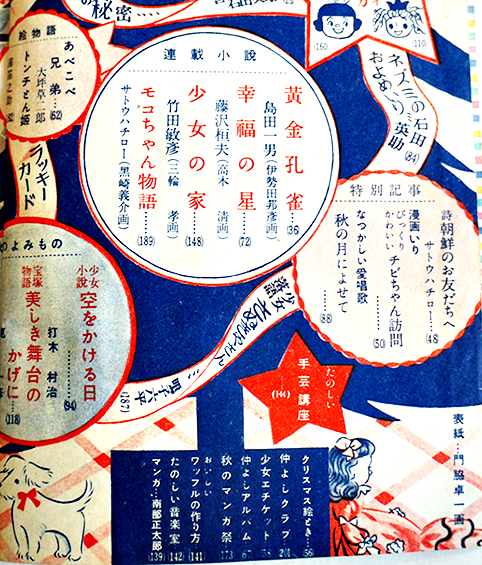 の秘密……
(160)
(110)
ネズミの
およめいり
石田
英助
(84)
連載小説
黄金孔雀…(36)
島田一男(伊勢田邦彦画)
幸福の星…(72)
藤沢桓夫(高木清画)
少女の家…(148)
竹田敏彦(三輪孝画)
モコちゃん物語…(189)
サトウハチロー(黒崎義介画)
絵物語
あべこべ
兄弟…(62)
大坪草二郎
トンチとん姫
ラッキー
カード
特別記事
詩 朝鮮のお友だちへ
サトウハチロー…(48)
漫画いり
びっくり
かわいい
チビちゃん訪問
(50)
なつかしい愛唱歌
秋の月によせて
(88)
よみもの
少女小説
空をかける日
打木村治
(94)
宝塚物語
美しき舞台の
かげに
(118)
(187)
たのしい
手芸講座
表紙…門脇卓一画
クリスマス絵とき…(56)
仲よしクラブ
少女エチケット
仲よしアルバム
秋のマンガ祭
173
おいしい
ワッフルの作り方
(141)
たのしい音楽室
(142)
マンガ…南部正太郎
(139)